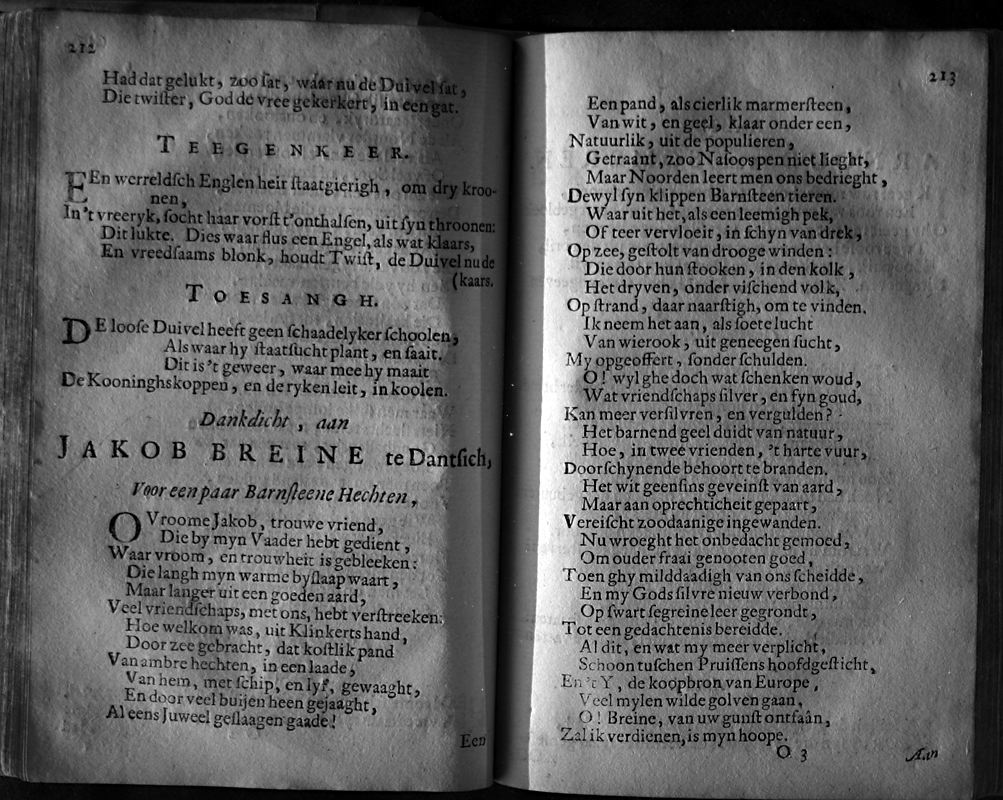 212
Had dat gelukt, zoo sat, waar nu de Duivel sat,
Die twister, God de vree gekerkert, in een gat.
TEEGENKEER.
EEn werreldsch Englen heir staatgierigh, om dry kroo-
nen,
In't vreeryk, socht haar vorst t'onthalsen, uit syn throonen:
Dit lukte. Dies waar flus een Engel, als wat klaars,
En vreedsaams blonk, houdt Twist, de Duivel nu de
(kaars.
TOESANGH.
DE loose Duivel heeft geen schaadelyker schoolen,
Als waar hy staatsucht plant, en saait.
Dit is 't geweer, waar mee hy maait
De Kooninghskoppen, en de ryken leit, in koolen.
Dankdicht, aan
JAKOB BREINE te Dantsich,
Voor een paar Barnsteene Hechten,
O Vroome Jakob, trouwe vriend,
Die by myn Vaader hebt gedient,
Waar vroom, en trouwheit is gebleeken:
Die langh myn warme byslaap waart,
Maar langer uit een goeden aard,
Veel vriendschaps, met ons, hebt verstreeken:
Hoe welkom was, uit Klinkerts hand,
Door zee gebracht, dat kostlik pand
Van ambre hechten, in een laade,
Van hem, met schip, en lyf, gewaaght,
En door veel buijen heen gejaaght,
Al eens Juweel geslaagen gaade!
Een
213
Een pand, als cierlik marmersteen,
Van wit, en geel, klaar onder een,
Natuurlik, uit de populieren,
Getraant, zoo Nasoos pen niet lieght,
Maar Noorden leert men ons bedrieght,
Dewyl syn klippen Barnsteen tieren.
Waar uit het, als een leemigh pek,
Of teer vervloeit, in schyn van drek,
Op zee, gestolt van drooge winden:
Die door hun stooken, in den kolk,
Het dryven, onder vischend volk,
Op strand, daar naarstigh, om te vinden.
Ik neem het aan, als soete lucht
Van wierook, uit geneegen sucht,
My opgeoffert, sonder schulden.
O! wyl ghe doch wat schenken woud,
Wat vriendschaps silver, en fyn goud,
Kan meer versilvren, en vergulden?
Het barnend geel duidt van natuur,
Hoe, in twee vrienden, 't harte vuur,
Doorschynende behoort te branden.
Het wit geensins geveinst van aard,
Maar aan oprechticheit gepaart,
Vereischt zoodaanige ingewanden.
Nu wroeght het onbedacht gemoed,
Om ouder fraai genooten goed,
Toen ghy milddaadigh van ons scheidde,
En my Gods silvre nieuw verbond,
Op swart segreine leer gegrondt,
Tot een gedachtenis bereidde.
Al dit, en wat my meer verplicht,
Schoon tuschen Pruissens hoofdgesticht,
En 't Y, de koopbron van Europe,
Veel mylen wilde golven gaan,
O! Breine, van uw gunst ontfaân,
Zal ik verdienen, is myn hoope.
O 3
Aan